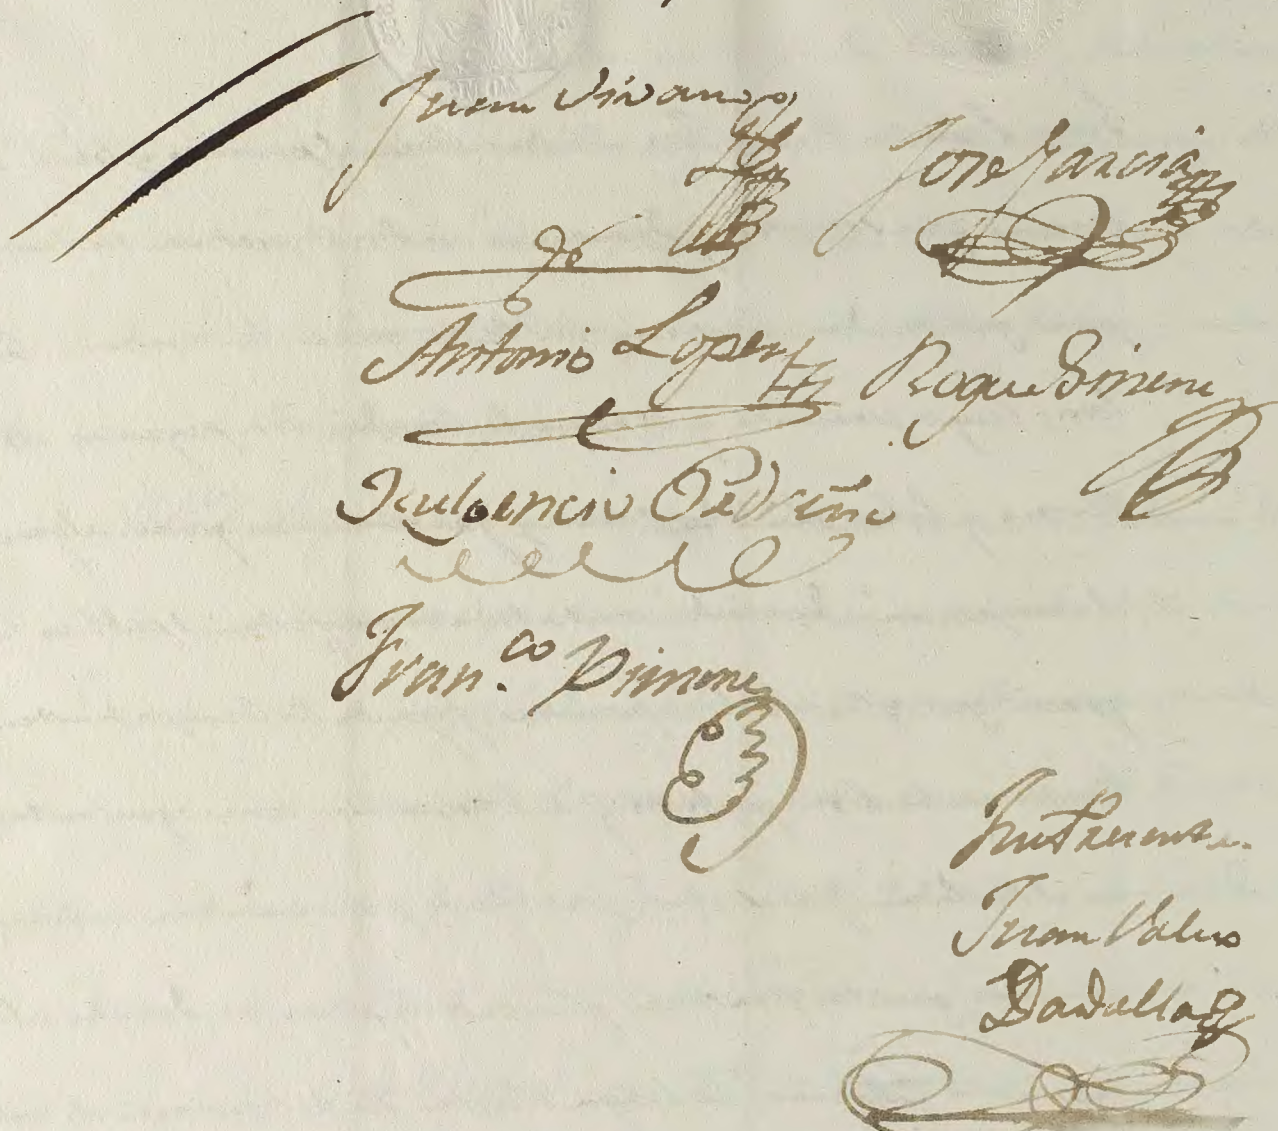 Juan Vivanco
Jose Garcia
Antonio Lopez
Roque Simene
Fulgencio Pedriño
Fran.co Ximenez
Juan Valero
Badalla